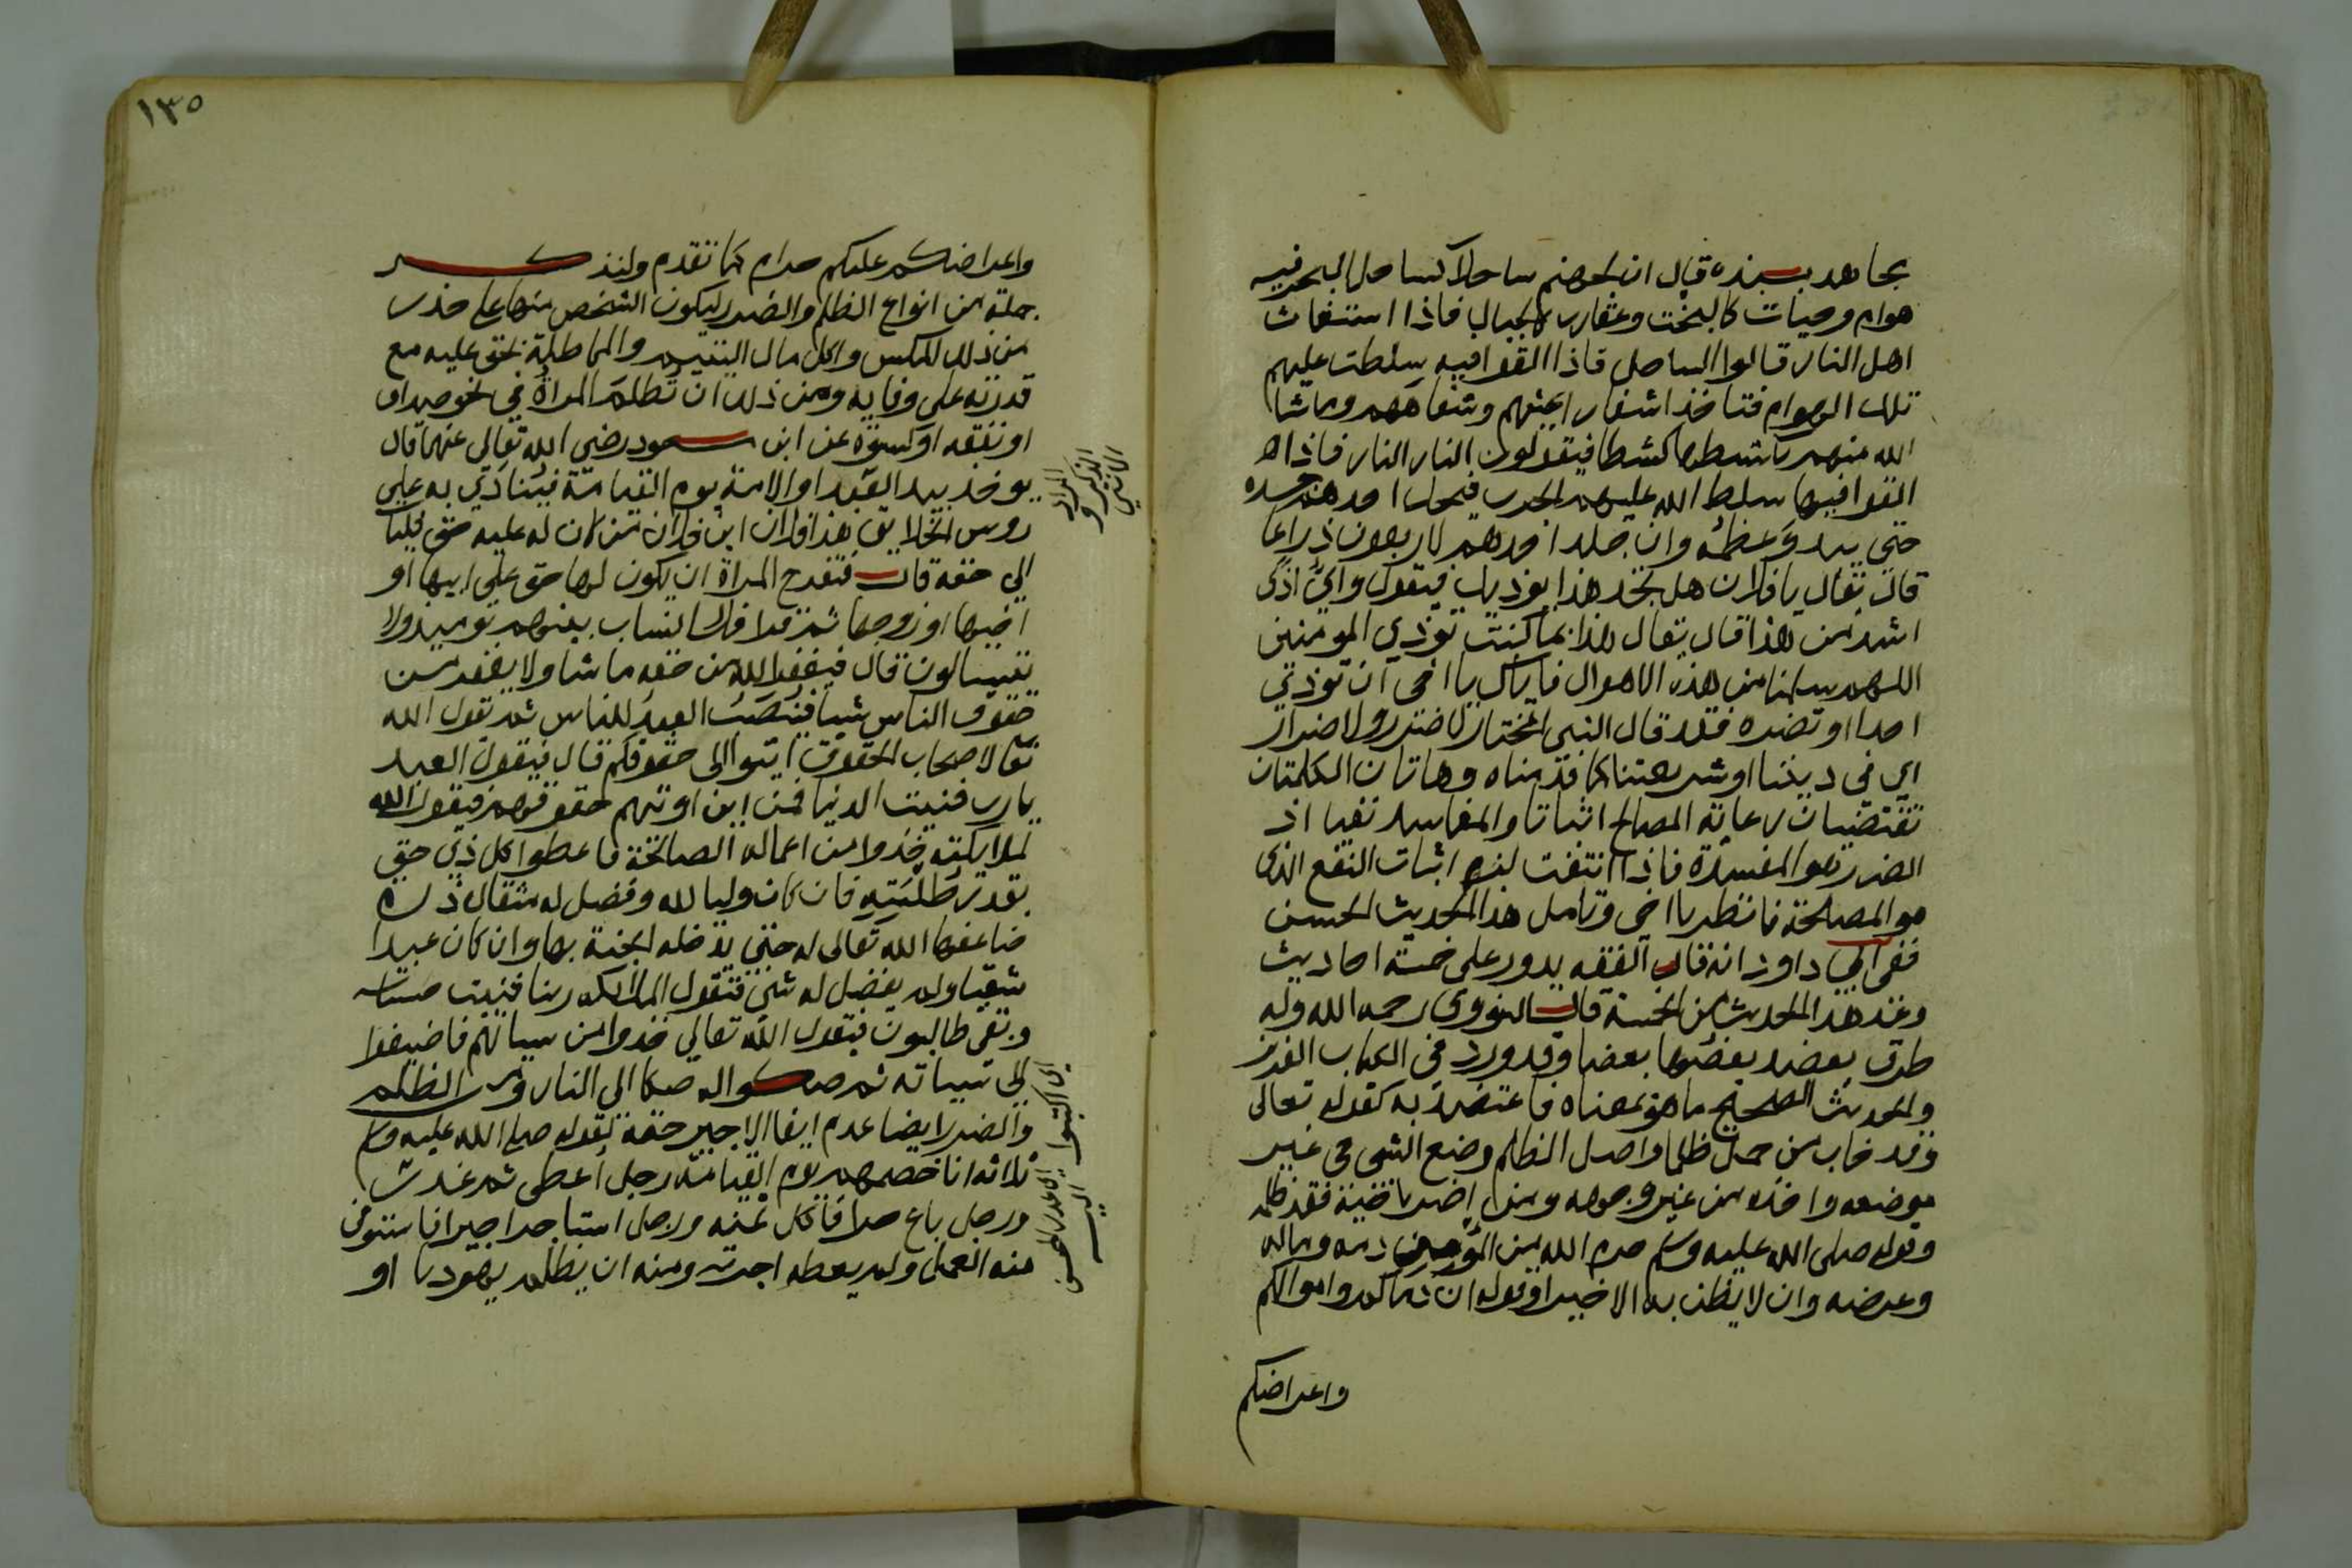 مجاهد بسنده قال ان لجهنم ساحلا كساحل البحر فيه
هوام وحيات كالبخت وعقارب كالجبال فاذا استغاث
اهل النار قالوا الساحل فاذا القوا فيه سلطت عليهم
تلك الهوام فتاخذ اشفار اعينهم وشفاههم وما شا
الله منهم تكشطها كشطا فيقولون النار النار فاذا
القوا فيها سلط الله عليهم الجرب فيحك احدهم جسده
حتى يبدو عظمه وان جلد احدهم لاربعون ذراعا
قال يقال يا فلان هل تجد هذا يوذيك فيقول واي اذى
اشد من هذا قال يقال هذا بما كنت توذي المومنين
اللهم سلمنا من هذه الاهوال فاياك يا اخى ان توذي
احدا او تضره فقد قال النبي المختار لا ضرر ولا ضرار
اي في ديننا او شريعتنا كما قدمناه وهاتان الكلمتان
تقتضيان رعاية المصالح اثباتا والمفاسد نفيا اذ
الضرر هو المفسدة فاذا انتفت لزم اثبات النفع الذى
هو المصلحة فانظر يا اخي وتامل هذا الحديث الحسن
فعن ابي داود انه قال الفقه يدور على خمسة احاديث
وعد هذا الحديث من الخمسة قال النووى رحمه الله وله
طرق يعضد بعضها بعضا وقد ورد في الكتاب العزيز
والحديث الصحيح ما هو بمعناه فاعتضد به كقوله تعالى
وقد خاب من حمل ظلما واصل الظلم وضع الشي في غير
موضعه واخذه من غير وجوهه ومن اضر باخيه فقد ظلمه
وقوله صلى الله عليه وسلم حرم الله من المؤمن دمه وماله
وعرضه وان لا يظن به الا خيرا وقوله ان دماكم واموالكم
واعراضكم
١٣٥
واعراضكم عليكم حرام كما تقدم ولنذكر
جملة من انواع الظلم والضرر ليكون الشخص منها على حذر
من ذلك المكس واكل مال اليتيم والمماطلة بحق عليه مع
قدرته على وفايه ومن ذلك ان تظلم المراة في نحو صداق
او نفقه او كسوة عن ابن مسعود رضي الله تعالى عنهما قال
يوخذ بيد العبد او الامة يوم القيامة فينادي به على
روس الخلايق هذا فلان ابن فلان من كان له عليه حق فليات
الى حقه قال فتفرح المراة ان يكون لها حق على ابيها او
اخيها او زوجها ثم قرا فلا انساب بينهم يوميذ ولا
يتسالون قال فيغفر الله من حقه ما شا ولا يغفر من
حقوق الناس شيا فينصب العبد للناس ثم يقول الله
تعالى لاصحاب الحقوق ايتوا الى حقوقكم قال فيقول العبد
يارب فنيت الدنيا فمن اين اوتيهم حقوقهم فيقول الله
لملايكته خذوا من اعماله الصالحة فاعطوا كل ذي حق
بقدر طلبته فان كان وليا لله وفضل له مثقال ذرة
ضاعفها الله تعالى له حتى يدخله الجنة بها وان كان عبدا
شقيا ولم يفضل له شي فتقول الملائكه ربنا فنيت حسناته
وبقي طالبون فيقول الله تعالى خذوا من سياتهم فاضيفوا
الى سيياته ثم صكوا له صكا الى النار ومن الظلم
والضرر ايضا عدم ايفا الاجير حقه لقوله صلى الله عليه وسلم
ثلاثه انا خصمهم يوم القيامة رجل اعطى ثم غدر
ورجل باع حرا فاكل ثمنه ورجل استاجر اجيرا فاستوفى
منه العمل ولم يعطه اجرته ومنه ان يظلم يهوديا او